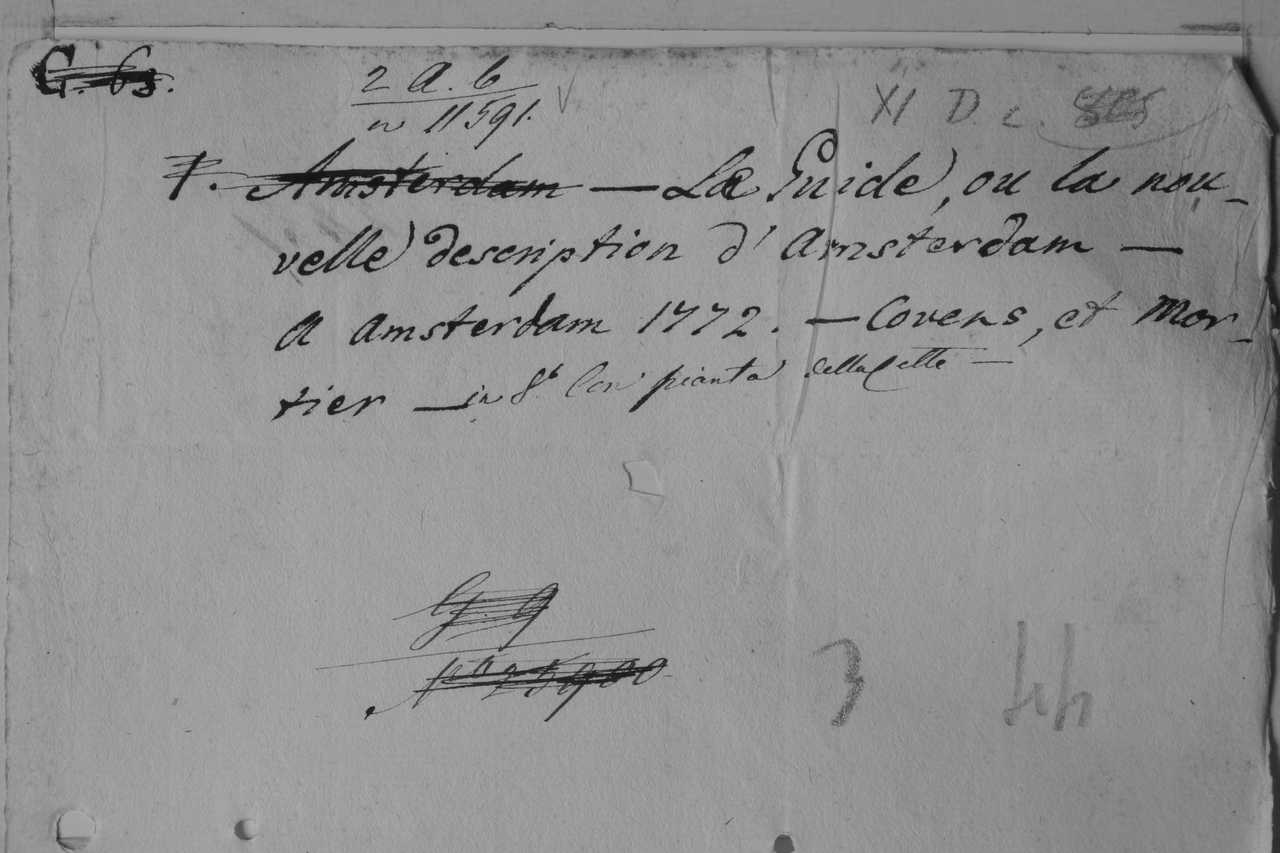 G. 63.
2 A. 6
n 11591.
XI D. c.
P. Amsterdam — Le Guide, ou la nou-
velle description d'Amsterdam —
A Amsterdam 1772. — Covens, et Mor-
tier — in 8.° Con pianta della Città —
G. 9
N.° 25900
3 44